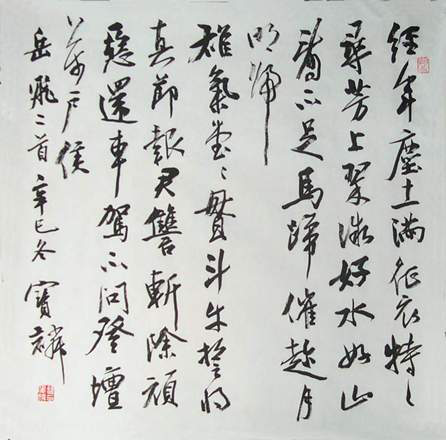 經年塵土滿征衣特々
尋芳上翠微好水好山
看不足馬蹄催趁月
明歸
雄氣堂々貫斗牛誓將
真節報君讎斬除頑
惡還車駕不問登壇
萬戶侯
岳飛二首辛巳冬寶麟